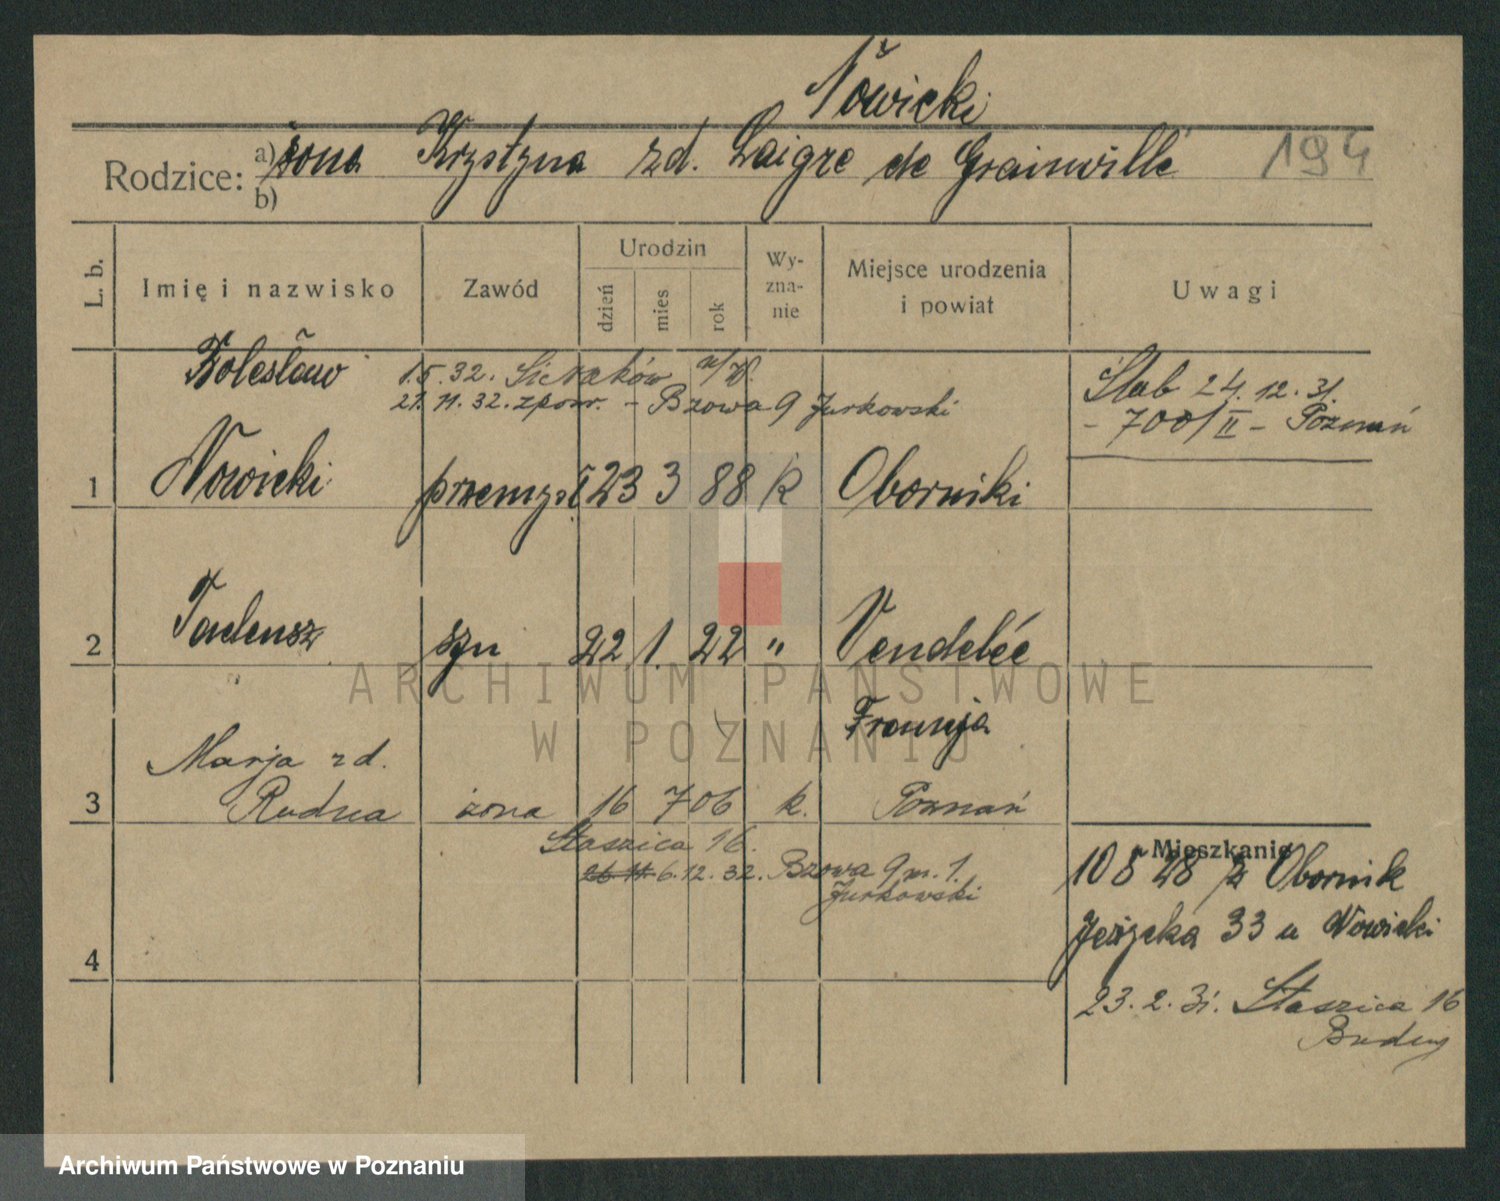 Nowicki
Rodzice: a) żona Krystyna zd. Laigre de Grainville 194
b)
L. b. Imię i nazwisko Zawód Urodzin dzień mies rok Wyznanie Miejsce urodzenia i powiat Uwagi
Bolesław 1.5.32. Sieraków n/W. Ślub 24.12.31.
21.11.32. z powr. - Bzowa 9 Jurkowski - 700/II - Poznań
1 Nowicki przemysł 23 3 88 k Oborniki
2 Tadeusz syn 22 1. 22 " Vendelée
Francja
Marja zd.
3 Rudna żona 16 7 06 k. Poznań
Staszica 16.
Mieszkanie
6.12.32. Bzowa 9 m. 1.
Jurkowski
10 5 28 z Obornik
4 Jeżycka 33 u Nowicki
23.2.31. Staszica 16
ARCHIWUM PAŃSTWOWE
W POZNANIU
Archiwum Państwowe w Poznaniu